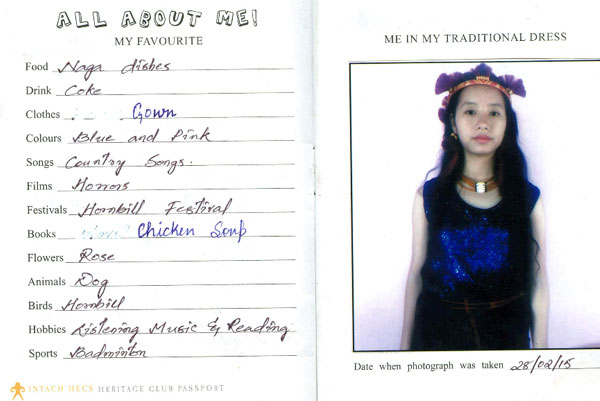 ALL ABOUT ME!
MY FAVOURITE
Food Naga dishes
Drink Coke
Clothes Gown
Colours Blue and Pink
Songs Country Songs.
Films Horrors
Festivals Hornbill Festival
Books Chicken Soup
Flowers Rose
Animals Dog
Birds Hornbill
Hobbies Listening Music & Reading
Sports Badminton
INTACH HECS HERITAGE CLUB PASSPORT
ME IN MY TRADITIONAL DRESS
Date when photograph was taken 28/02/15